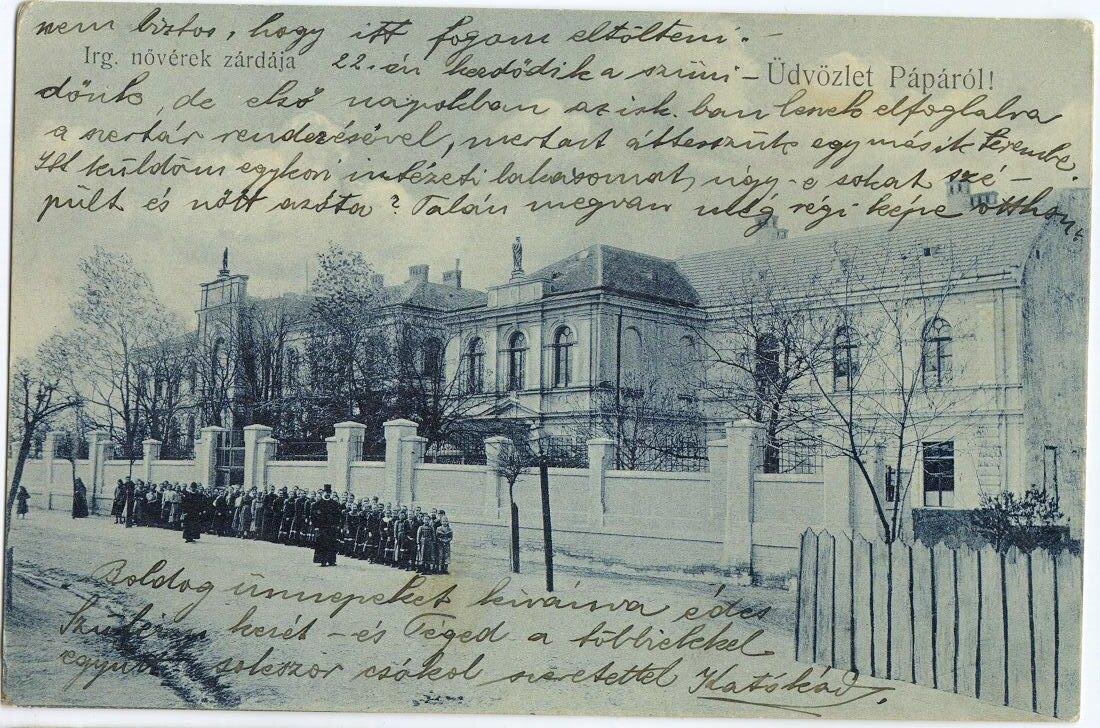 nem biztos, hogy itt fogom eltölteni. –
Irg. nővérek zárdája
22.-én kezdődik a szüni-
Üdvözlet Pápáról!
dőnk, de első napokban az isk. ban leszek elfoglalva
a szertár rendezésével, mertazt átteszszük egy másik terembe.
Itt küldöm egykori intézeti lakásomat, úgy-e sokat szé-
pült és nőtt azóta? Talán megvan még régi képe otthon.
Boldog ünnepeket kívánva édes
kezét – és Téged a többiekkel
együtt sokszor csókol szeretettel Katókád